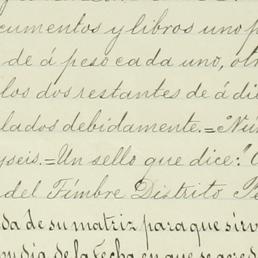 cumentos y libros uno p
de á peso cada uno, otr
los dos restantes de á di
lados debidamente.=Núm
yseis.=Un sello que dice:"
del Timbre Distrito Fe
da de su matriz para que sirv